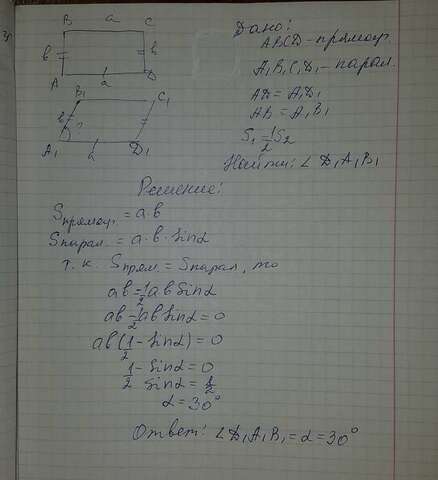 B a C
Дано:
ABCD - прямоуг.
b b
A a D
A₁B₁C₁D₁ - парал.
B₁ C₁
AD = A₁D₁
AB = A₁B₁
b ?
S₁ = 1/2 S₂
A₁ a D₁
Найти: ∠ D₁A₁B₁
Решение:
Sпрямоуг. = a·b
Sпарал. = a·b·sinα
т. к. Sпрям. = Sпарал, то
ab = 1/2 ab sinα
ab - 1/2 ab sinα = 0
ab (1/2 - sinα) = 0
1/2 - sinα = 0
sinα = 1/2
α = 30°
Ответ: ∠ D₁A₁B₁ = α = 30°